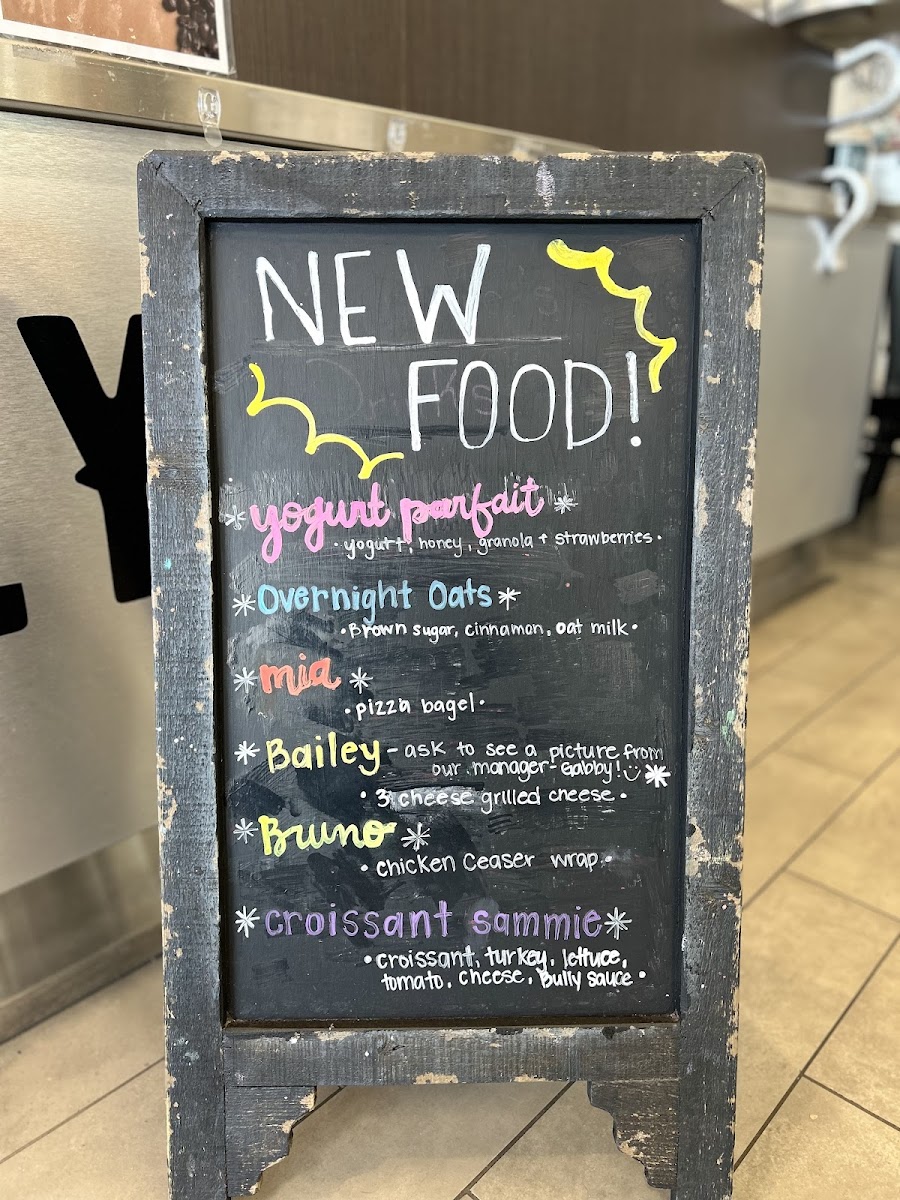 NEW
FOOD!
*yogurt parfait*
· yogurt, honey, granola + strawberries ·
*Overnight Oats*
• Brown sugar, cinnamon, oat milk •
*mia*
• pizza bagel •
*Bailey - ask to see a picture from
our manager - Gabby! *
• 3 cheese grilled cheese •
*Bruno*
• chicken ceaser wrap •
*croissant sammie*
• croissant, turkey, lettuce,
tomato, cheese, Bully sauce •